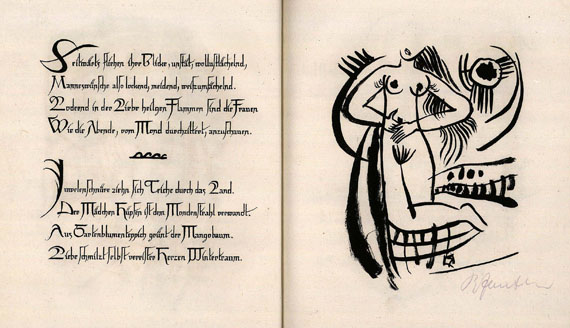 Seitwärts fliehen ihre Glieder, unstät,
Manneswünsche also lockend, meidend,
Lodernd in der Liebe heilgen Flammen sind die Frauen
Wie die Abende, vom Mond durchzittert, anzuschauen.
Juwelenschnüre ziehn sich Teiche durch das Land.
Der Mädchen Hüpfen ist dem Mondenstrahl verwandt.
Aus Gartenblumenteppich grünt der Mangobaum.
Liebe schmilzt selbst vereister Herzen Wintertraum.